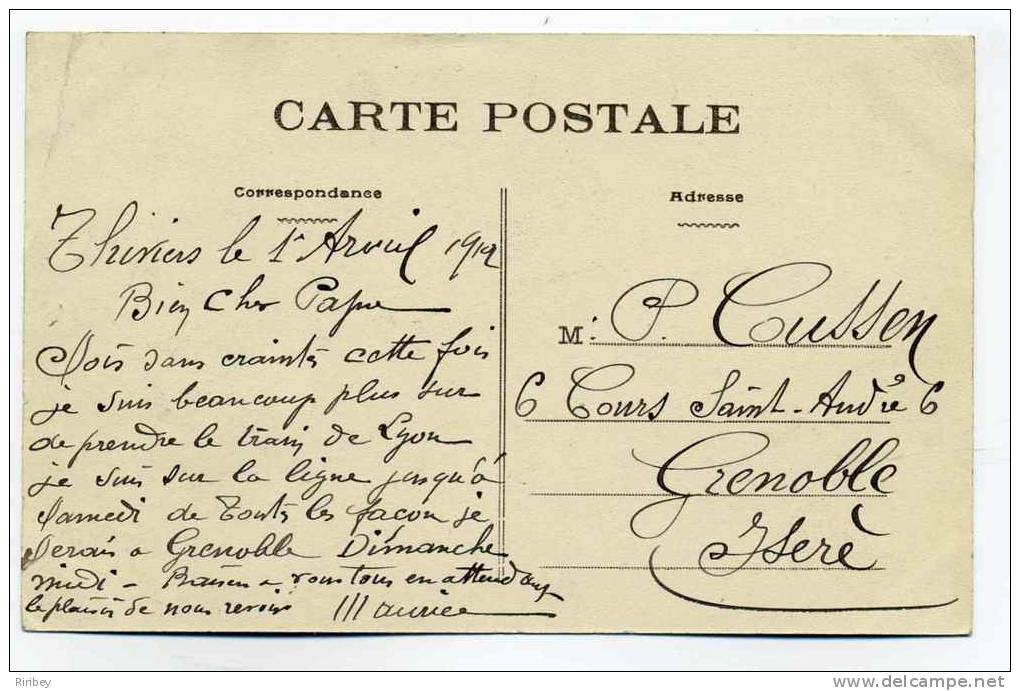 CARTE POSTALE
Correspondance
Thiviers le 1er Avril 1912
Bien Cher Papa
Sois sans craintes cette fois
je suis beaucoup plus sur
de prendre le train de Lyon
je suis sur la ligne jusqu'à
Samedi de toutes les facon je
serais a Grenoble Dimanche
midi - Baisers a vous tous en attendant
le plaisir de nous revoir Maurice
Adresse
M. P. Cussen
6 Cours Saint-André 6
Grenoble
Isère
Riribey
www.delcampe.net